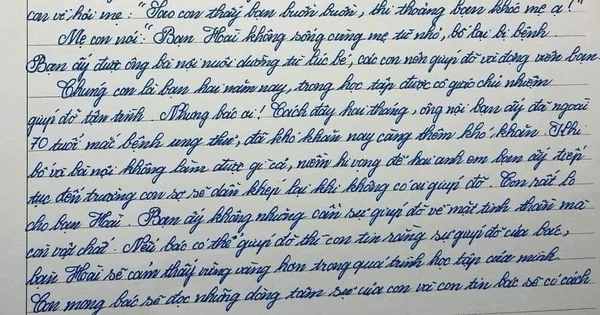 con về hỏi mẹ: "Sao con thấy bạn buồn buồn, thi thoảng bạn khóc mẹ ạ!"
Mẹ con nói: "Bạn Hoài không sống cùng mẹ từ nhỏ, bố lại bị bệnh
Bạn ấy được ông bà nội nuôi dưỡng từ lúc bé, các con nên giúp đỡ và động viên bạn.
Chúng con là bạn hai năm nay, trong học tập được cô giáo chủ nhiệm
giúp đỡ tận tình. Nhưng bác ơi! Cách đây hai tháng, ông nội bạn ấy đã ngoài
70 tuổi mắc bệnh ung thư, đã khó khăn nay càng thêm khó khăn. Khi
bố và bà nội không làm được gì cả, niềm hi vọng để hai anh em bạn ấy tiếp
tục đến trường con sợ sẽ dần khép lại khi không có ai giúp đỡ. Con rất lo
cho bạn Hoài. Bạn ấy không những cần sự giúp đỡ về mặt tinh thần mà
còn vật chất. Nếu bác có thể giúp đỡ thì con tin rằng sự giúp đỡ của bác,
bạn Hoài sẽ cảm thấy vững vàng hơn trong quá trình học tập của mình
Con mong bác sẽ đọc những dòng tâm sự của con và con tin bác sẽ có cách